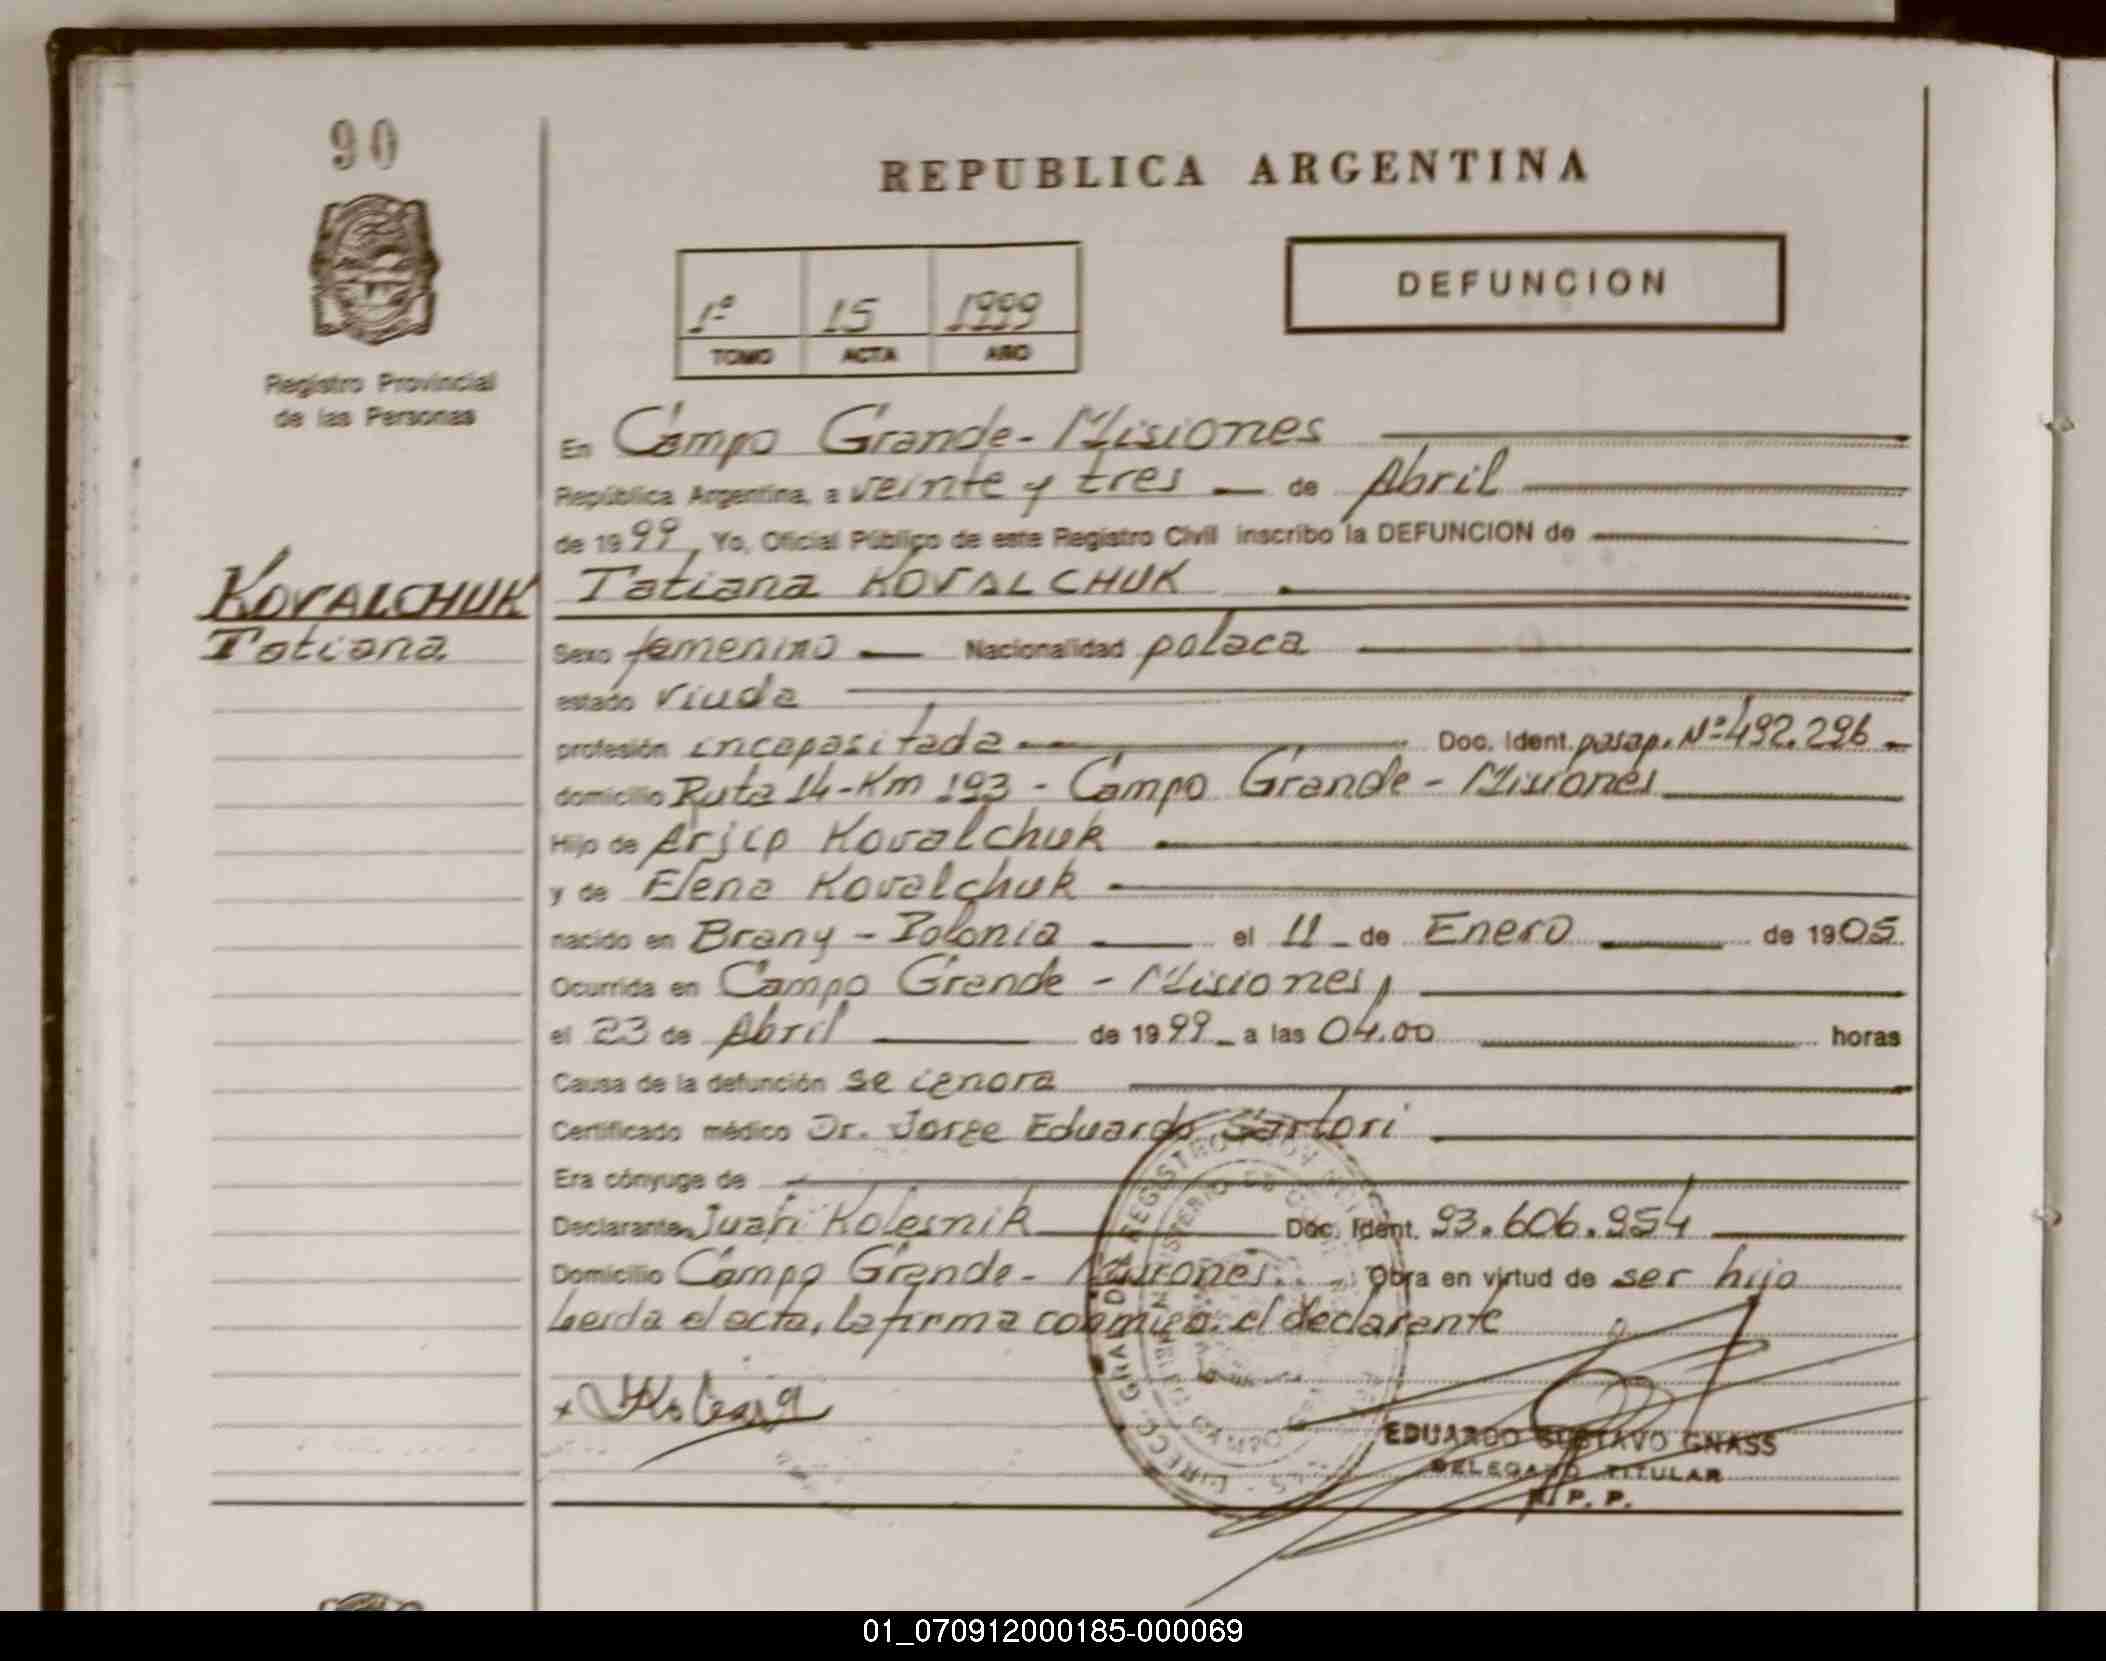 90
REPUBLICA ARGENTINA
DEFUNCION
1º 15 1999
TOMO ACTA AÑO
Registro Provincial
de las Personas
En Campo Grande - Misiones
República Argentina, a veinte y tres de Abril
de 1999, Yo, Oficial Público de este Registro Civil inscribo la DEFUNCION de
KOVALCHUK
Tatiana
Tatiana KOVALCHUK
Sexo femenino Nacionalidad polaca
estado viuda
profesión incapasitada Doc. Ident. pasap. Nº 492.296
domicilio Ruta 14 - Km 193 - Campo Grande - Misiones
Hijo de Arjip Kovalchuk
y de Elena Kovalchuk
nacido en Brany - Polonia el 11 de Enero de 1905
Ocurrida en Campo Grande - Misiones,
el 23 de Abril de 1999 a las 04.00 horas
Causa de la defunción se ignora
Certificado médico Dr. Jorge Eduardo Sartori
Era cónyuge de
Declarante Juan Kolesnik Doc. Ident. 93.606.954
Domicilio Campo Grande - Misiones. Obra en virtud de ser hijo
Leida el acta, la firma conmigo, el declarante
EDUARDO GUSTAVO GNASS
DELEGADO TITULAR
R. P. P.
01_070912000185-000069